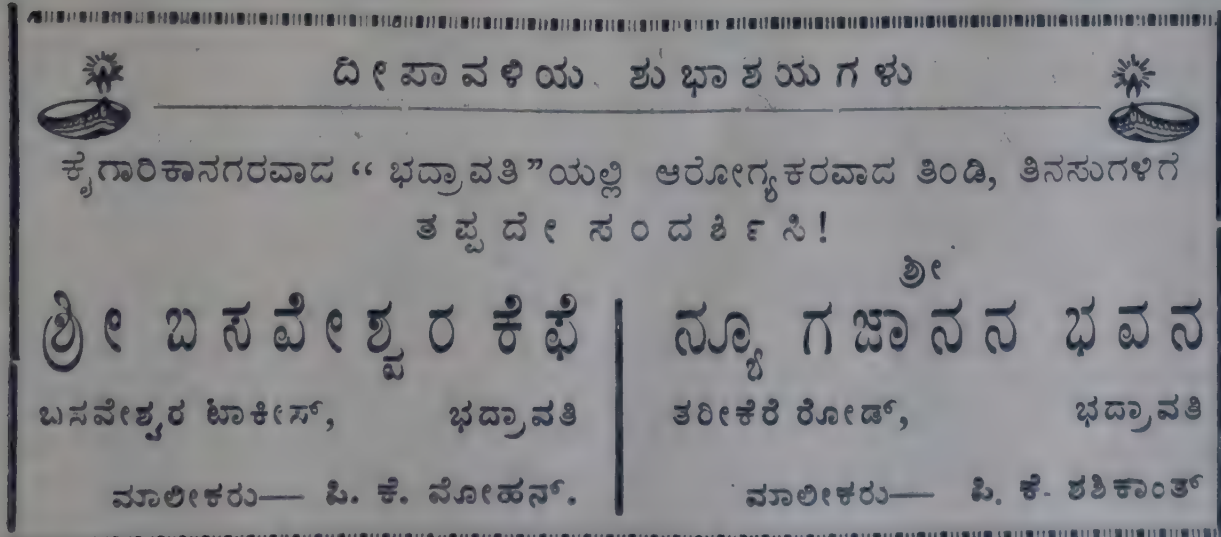 ದೀಪಾವಳಿಯ ಶುಭಾಶಯಗಳು
ಕೈಗಾರಿಕಾನಗರವಾದ “ ಭದ್ರಾವತಿ ”ಯಲ್ಲಿ ಆರೋಗ್ಯಕರವಾದ ತಿಂಡಿ, ತಿನಸುಗಳಿಗೆ
ತಪ್ಪದೇ ಸಂದರ್ಶಿಸಿ!
ಶ್ರೀ ಬಸವೇಶ್ವರ ಕೆಫೆ
ಬಸವೇಶ್ವರ ಟಾಕೀಸ್, ಭದ್ರಾವತಿ
ಮಾಲೀಕರು— ಪಿ. ಕೆ. ಮೋಹನ್.
ಶ್ರೀ
ನ್ಯೂ ಗಜಾನನ ಭವನ
ತರೀಕೆರೆ ರೋಡ್, ಭದ್ರಾವತಿ
ಮಾಲೀಕರು— ಪಿ. ಕೆ. ಶಶಿಕಾಂತ್